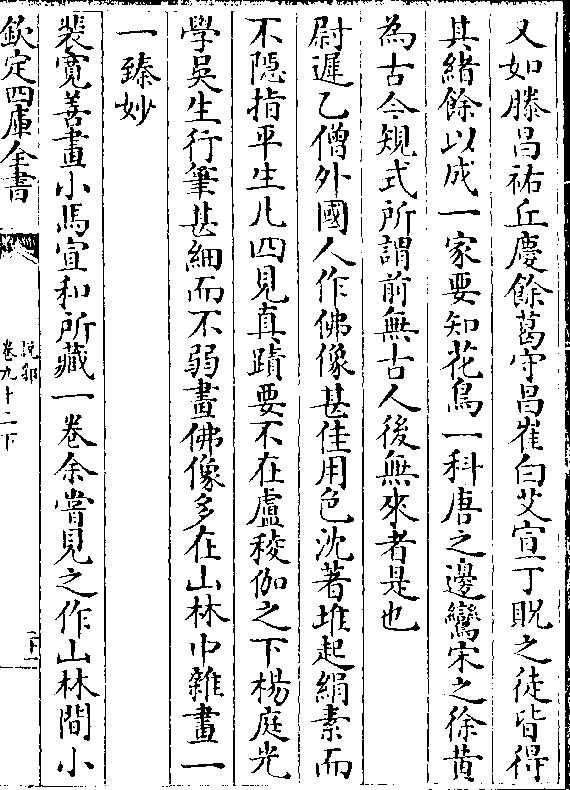 又如滕昌祐丘慶餘葛守昌崔白艾宣丁貺之徒皆得
其緒餘以成一家要知花鳥一科唐之邊鸞宋之徐黄
為古今規式所謂前無古人後無來者是也
尉遲乙僧外國人作佛像甚佳用色沈著堆起絹素而
不隱指平生凡四見真蹟要不在盧稜伽之下楊庭光
學吳生行筆甚細而不弱畫佛像多在山林中雜畫一
一臻妙
裴寛善畫小馬宣和所藏一卷余嘗見之作山林間小
欽定四庫全書
說郛
卷九十二下